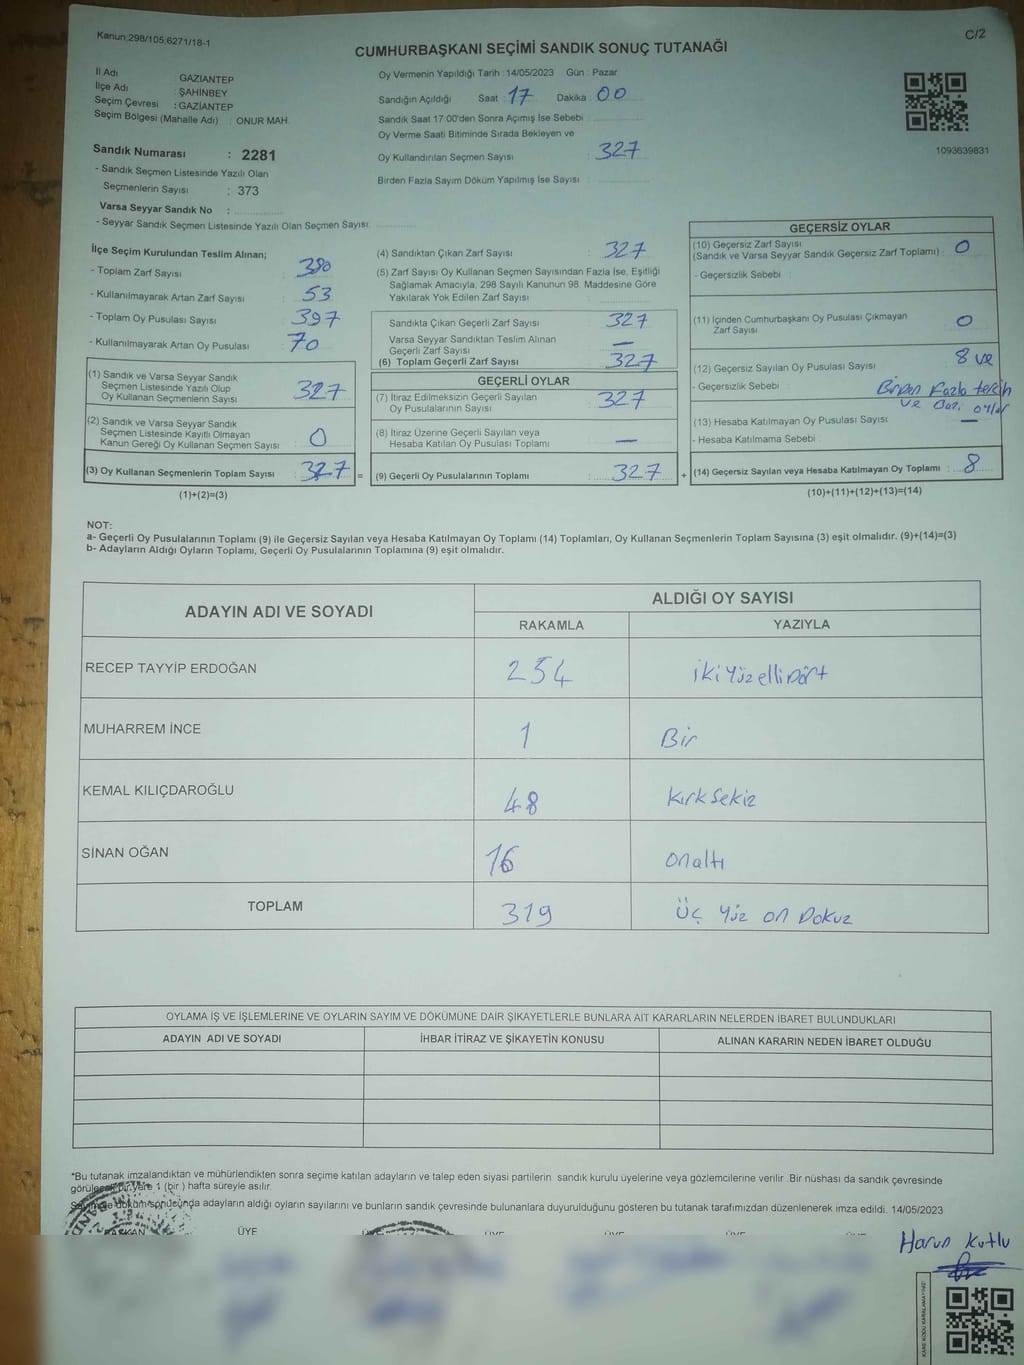 Kanun:298/105;6271/18-1
C/2
CUMHURBAŞKANI SEÇİMİ SANDIK SONUÇ TUTANAĞI
İl Adı : GAZİANTEP
İlçe Adı : ŞAHİNBEY
Seçim Çevresi : GAZİANTEP
Seçim Bölgesi (Mahalle Adı) : ONUR MAH.
Sandık Numarası : 2281
- Sandık Seçmen Listesinde Yazılı Olan
Seçmenlerin Sayısı : 373
Varsa Seyyar Sandık No :
- Seyyar Sandık Seçmen Listesinde Yazılı Olan Seçmen Sayısı:
Oy Vermenin Yapıldığı Tarih : 14/05/2023 Gün : Pazar
Sandığın Açıldığı Saat : 17 Dakika : 00
Sandık Saat 17:00'den Sonra Açımış İse Sebebi :
Oy Verme Saati Bitiminde Sırada Bekleyen ve
Oy Kullandırılan Seçmen Sayısı : 327
Birden Fazla Sayım Döküm Yapılmış İse Sayısı :
1093639831
İlçe Seçim Kurulundan Teslim Alınan;
- Toplam Zarf Sayısı : 380
- Kullanılmayarak Artan Zarf Sayısı : 53
- Toplam Oy Pusulası Sayısı : 397
- Kullanılmayarak Artan Oy Pusulası : 70
(1) Sandık ve Varsa Seyyar Sandık
Seçmen Listesinde Yazılı Olup
Oy Kullanan Seçmenlerin Sayısı : 327
(2) Sandık ve Varsa Seyyar Sandık
Seçmen Listesinde Kayıtlı Olmayan
Kanun Gereği Oy Kullanan Seçmen Sayısı : 0
(3) Oy Kullanan Seçmenlerin Toplam Sayısı : 327 =
(1)+(2)=(3)
(4) Sandıktan Çıkan Zarf Sayısı : 327
(5) Zarf Sayısı Oy Kullanan Seçmen Sayısından Fazla İse, Eşitliği
Sağlamak Amacıyla, 298 Sayılı Kanunun 98. Maddesine Göre
Yakılarak Yok Edilen Zarf Sayısı :
Sandıkta Çıkan Geçerli Zarf Sayısı : 327
Varsa Seyyar Sandıktan Teslim Alınan
Geçerli Zarf Sayısı : —
(6) Toplam Geçerli Zarf Sayısı : 327
GEÇERLİ OYLAR
(7) İtiraz Edilmeksizin Geçerli Sayılan
Oy Pusulalarının Sayısı : 327
(8) İtiraz Üzerine Geçerli Sayılan veya
Hesaba Katılan Oy Pusulası Toplamı : —
(9) Geçerli Oy Pusulalarının Toplamı : 327 +
GEÇERSİZ OYLAR
(10) Geçersiz Zarf Sayısı
(Sandık ve Varsa Seyyar Sandık Geçersiz Zarf Toplamı) : 0
- Geçersizlik Sebebi :
(11) İçinden Cumhurbaşkanı Oy Pusulası Çıkmayan
Zarf Sayısı : 0
(12) Geçersiz Sayılan Oy Pusulası Sayısı : 8 ve
- Geçersizlik Sebebi : Birden Fazla tercih
ve Bazı oylar
(13) Hesaba Katılmayan Oy Pusulası Sayısı : —
- Hesaba Katılmama Sebebi :
(14) Geçersiz Sayılan veya Hesaba Katılmayan Oy Toplamı : 8
(10)+(11)+(12)+(13)=(14)
NOT:
a- Geçerli Oy Pusulalarının Toplamı (9) ile Geçersiz Sayılan veya Hesaba Katılmayan Oy Toplamı (14) Toplamları, Oy Kullanan Seçmenlerin Toplam Sayısına (3) eşit olmalıdır. (9)+(14)=(3)
b- Adayların Aldığı Oyların Toplamı, Geçerli Oy Pusulalarının Toplamına (9) eşit olmalıdır.
ADAYIN ADI VE SOYADI
ALDIĞI OY SAYISI
RAKAMLA YAZIYLA
RECEP TAYYİP ERDOĞAN 254 ikiyüzellidört
MUHARREM İNCE 1 Bir
KEMAL KILIÇDAROĞLU 48 kırksekiz
SİNAN OĞAN 16 onaltı
TOPLAM 319 üç yüz on dokuz
OYLAMA İŞ VE İŞLEMLERİNE VE OYLARIN SAYIM VE DÖKÜMÜNE DAİR ŞİKAYETLERLE BUNLARA AİT KARARLARIN NELERDEN İBARET BULUNDUKLARI
ADAYIN ADI VE SOYADI İHBAR İTİRAZ VE ŞİKAYETİN KONUSU ALINAN KARARIN NEDEN İBARET OLDUĞU
*Bu tutanak imzalandıktan ve mühürlendikten sonra seçime katılan adayların ve talep eden siyasi partilerin sandık kurulu üyelerine veya gözlemcilerine verilir .Bir nüshası da sandık çevresinde
görülecek bir yere 1 (bir ) hafta süreyle asılır.
Sayım ve döküm sonucunda adayların aldığı oyların sayılarını ve bunların sandık çevresinde bulunanlara duyurulduğunu gösteren bu tutanak tarafımızdan düzenlenerek imza edildi. 14/05/2023
BAŞKAN ÜYE ÜYE ÜYE ÜYE
Harun Kutlu